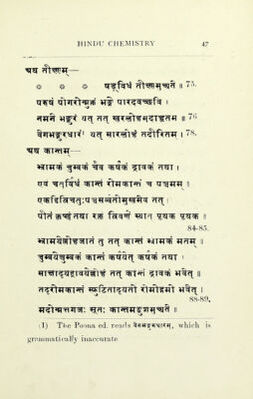 HINDU CHEMISTRY 47
अथ तीक्ष्णम्—
षड्विधं तीक्ष्णमुच्यते ॥ 75.
परुषं पोगरोन्मुक्तं भङ्गे पारदवच्छवि ।
नमने भङ्गुरं यत् तत् खरलोहमुदाहृतम् ॥ 76
वेगभङ्गुरधारं यत् सारलोहं तदीरितम् । 78.
अथ कान्तम्—
भ्रामकं चुम्बकं चैव कर्षकं द्रावकं तथा ।
एवं चतुर्विधं कान्तं रोमकान्तं च पञ्चमम् ॥
एकद्वित्रिचतुःपञ्चसर्व्वतोमुखमेव तत् ।
पीतं कृष्णं तथा रक्तं त्रिवर्णं स्यात् पृथक् पृथक् ॥
84-85.
भ्रामयेल्लोहजातं तु तत् कान्तं भ्रामकं मतम् ।
चुम्बयेच्चुम्बकं कान्तं कर्षयेत् कर्षकं तथा ।
साक्षाद्यद्द्रावयेल्लोहं तत् कान्तं द्रावकं भवेत् ॥
तद्रोमकान्तं स्फुटिताद्यतो रोमोद्गमो भवेत् ।
88-89.
मदोन्मत्तगजः सूतः कान्तमङ्कुशमुच्यते ॥
(1) The Poona ed. reads which is
grammatically inaccurate